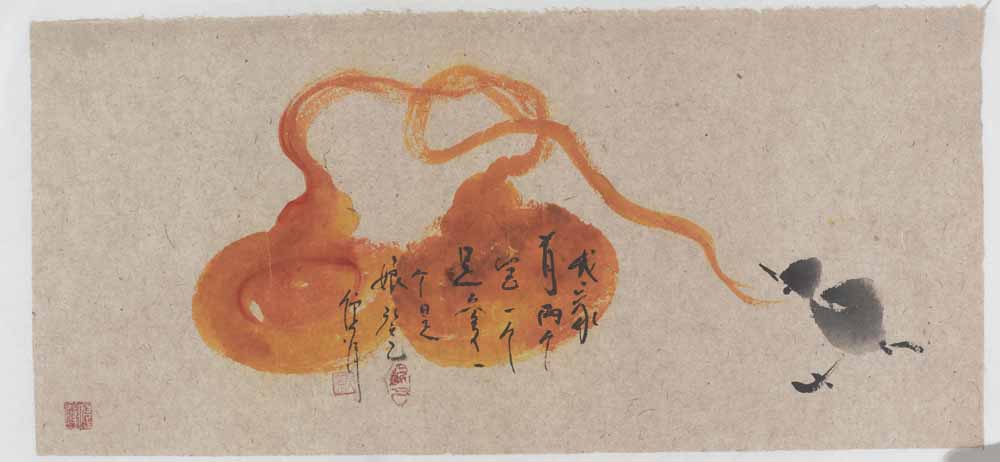 我家
有兩个
宝一个
是爹一
个是
娘癸巳